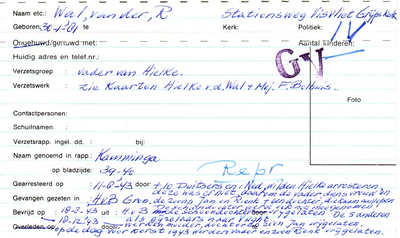 Naam etc.: Wal, van der, R Stationsweg Visvliet Grijpskerk
Geboren: 30-1-81 Kerk: Politiek:
Ongehuwd/gehuwd met: Aantal kinderen: IV
Huidig adres en telef.nr.: GV
Verzetsgroep : vader van Hielke.
Verzetswerk : zie Kaarten Hielke v.d. Wal + Mej. F. Bolhuis..
Foto
Contactpersonen:
Schuilnaam :
Verzetsrapp. ingel. dd. : bij:
Naam genoemd in rapp: Kamminga
op bladzijde: 39-40 Repr
Gearresteerd op 11-8-'43 door: ± 10 Duitsers en Ned, wilden Hielke arresteren
Gevangen gezeten in HvB Gron. deze was er niet, daarom de vader diens vrouw en
de zoons Jan en Rienk + een dochter,
Bevrijd op : 18-8-43 uit: HvB meegenomen.
18-12-'43 door: De schoondochter vrijgelaten. De 5 anderen
als gijzelaars naar Vught.
Overleden op: door: werden moeder, dochter en zoon Jan vrijgelaten.
op de dag voor Kerst 1943 werden vader en zoon Rienk vrijgelaten.